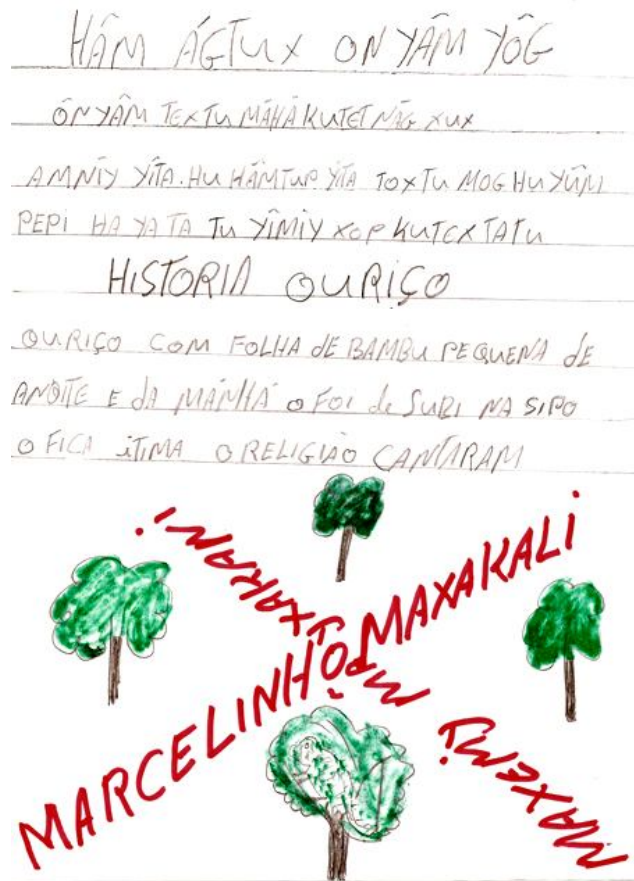 HÃM ÁGTUX ONYÃM YÔG
ÕNYÃM TEXTU MÃHÃ KUTET NÃG XUX
AMNIY YĨTA. HU HÃMTUP YĨTA TOXTU MOG HU YŨM
PEPI HA YA TA TU YĨMIY XOP KUTEX TATU
HISTORIA OURIÇO
OURIÇO COM FOLHA DE BAMBU PEQUENA DE
ANOITE E DA MÁNHÁ O FOI de SUBI NA SIPO
O FICA O RELIGIÃO CANTARAM
MARCELINHO MAXAKALI